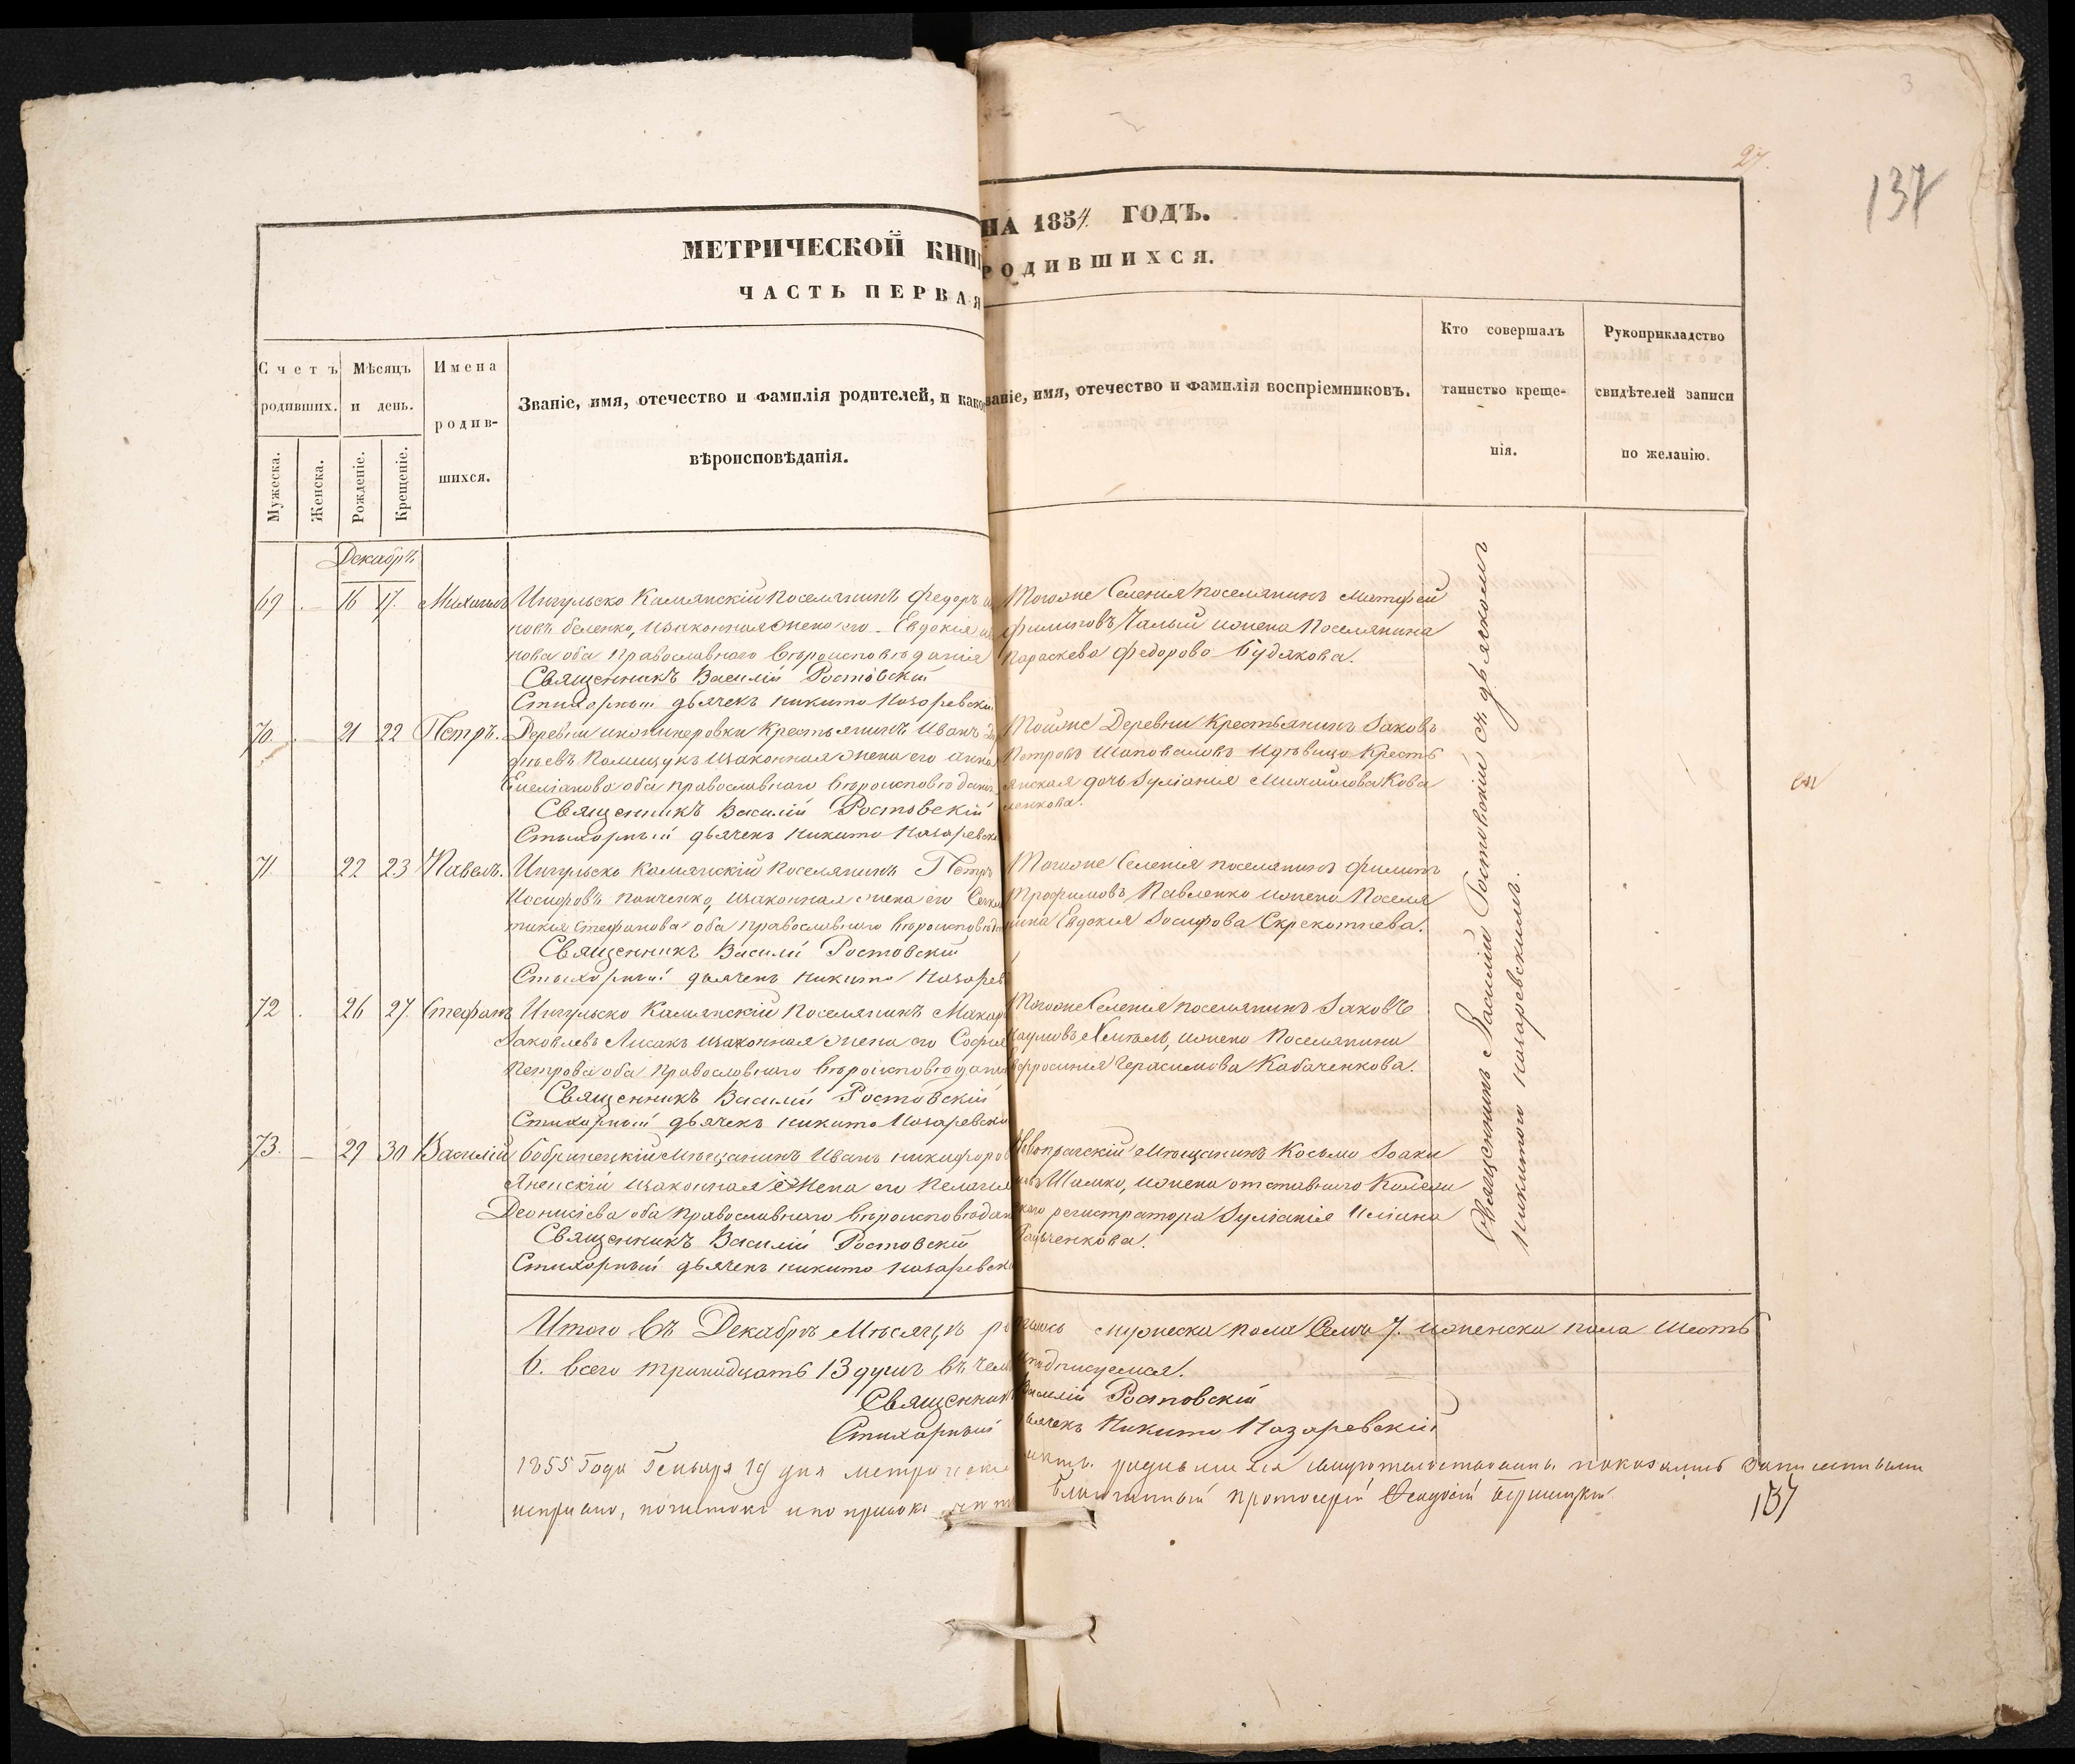 3
27.
137
МЕТРИЧЕСКОЙ КНИ
НА 1854 ГОДЪ.
ЧАСТЬ ПЕРВАЯ
РОДИВШИХСЯ.
Счетъ родившихъ.
Мѣсяцъ и день.
Имена родившихся.
Званіе, имя, отечество и фамилія родителей, и како
вѣроисповѣданія.
ваніе, имя, отечество и фамилія воспріемниковъ.
Кто совершалъ таинство крещенія.
Рукоприкладство свидѣтелей записи по желанію.
Мужеска.
Женска.
Рожденіе.
Крещеніе.
Декабрь
69 16 17. Михаилъ Ингульско Камянскій поселянинъ Федоръ
новъ беленко, изаконная жена его Евдокія
нова оба православнаго вѣроисповѣданія
Священникъ Василій Ростовскій
Стихарный дьячекъ никита Назаревскі
Тогоже Селенія поселянинъ Матфей
филиповъ Чалый ижена Поселянина
параскева федорова Будякова.
70. 21 22 Петръ. Деревни инжинеровки Крестьянинъ Иванъ
фіевъ Полищукъ изаконная жена его анна
Емеліанова оба православнаго вѣроисповѣданія
Священникъ Василій Ростовскій
Стихарный дьячекъ никита Назаревскі
Тойже Деревни крестьянинъ Іаковъ
Петровъ Шаповаловъ идѣвица Кресть
янская дочь Іуліанія Михайлова Кова
ленкова.
71 22 23 Павелъ. Ингульско Камянскій поселянинъ Петръ
Иосифовъ панченко, изаконная жена его
тикія Стефанова оба православнаго вѣроисповѣда
Священникъ Василій Ростовскій
Стихарный дьячекъ никита Назарев
Тогоже Селенія поселянинъ филипъ
Трофимовъ Павленко ижена Поселя
нина Евдокія Іосифова Скрекотнева.
72 26 27. Стефанъ Ингульско Камянскій Поселянинъ Макар
Іаковлевъ Лисакъ изаконная жена его Софія
Петрова оба православнаго вѣроисповѣданія
Священникъ Василій Ростовскій
Стихарный дьячекъ никита Назаревски
Тогоже Селенія поселянинъ Іаковъ
Наумовъ Хмѣль, ижена Поселянина
Ефросинія Герасимова Кабаченкова.
73. 29 30 Василій бобринецкій мѣщанинъ Иванъ никифоров
Яненскій изаконная жена его Пелагія
Деонисіева оба православнаго вѣроисповѣдан
Священникъ Василій Ростовскій
Стихарный дьячекъ никита Назаревскі
мѣщанинъ Косьма Іоаки
мовъ Шамко, ижена отставнаго Колежи
каго регистратора Іуліанія Иліина
Священникъ Василій Ростовскій съ дьячкомъ
никитою назаревскимъ.
Итого въ Декабрѣ Мѣсяцѣ ро дилось мужеска пола Семь 7. иженска пола шесть
6. всего тринадцать 13 душъ въ чем подписуемся.
Священникъ Василій Ростовскій
Стихарный дьячекъ Никита Назаревскій
1855 Года Генваря 19 дня
Благочинный протоіерей
137